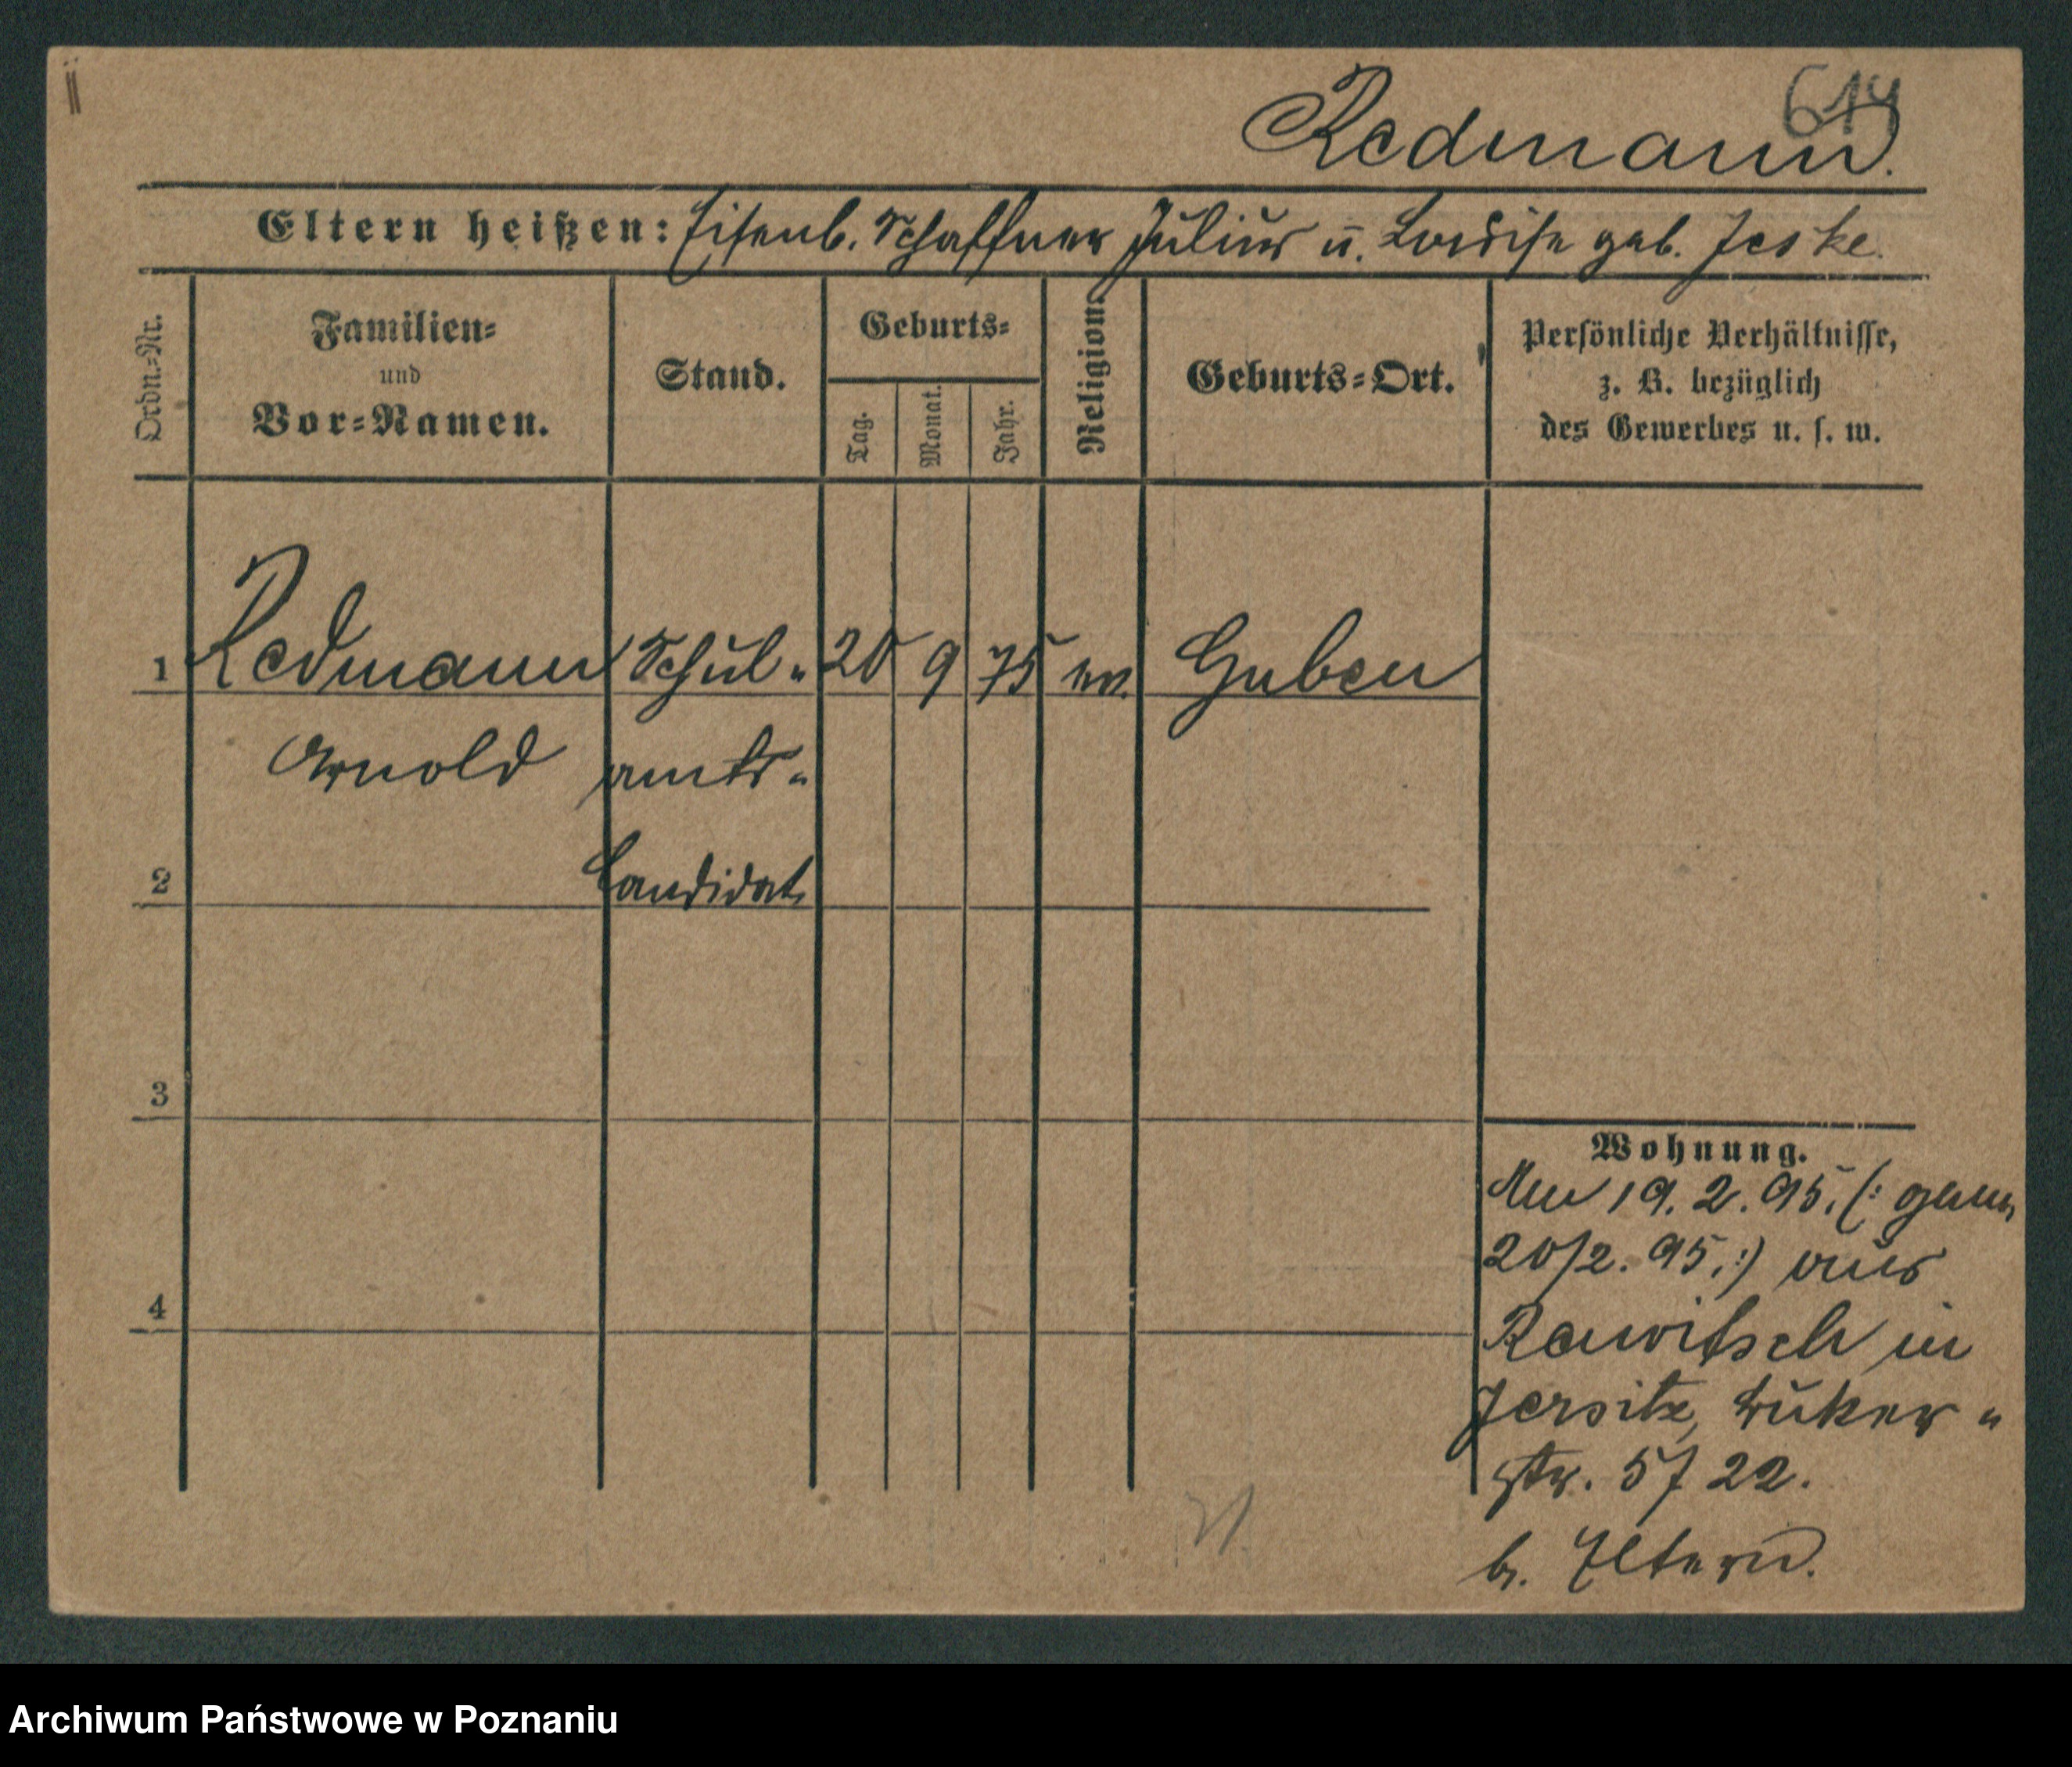 614
Redmann.
Eltern heißen: Eisenb. Schaffner Julius u. Louise geb. Jeske.
Ordn.-Nr.
Familien-
und
Vor-Namen.
Stand.
Geburts-
Tag.
Monat.
Jahr.
Religion.
Geburts-Ort.
Persönliche Verhältnisse,
z. B. bezüglich
des Gewerbes u. s. w.
1 Redmann Schul- 20 9 75 ev. Guben
Arnold amts-
2 Candidat
3
4
Wohnung.
Am 19. 2. 95. (: gem.
20/2. 95. :) aus
Rawitsch in
Jersitz,
str. 57 22.
b. Eltern.
Archiwum Państwowe w Poznaniu